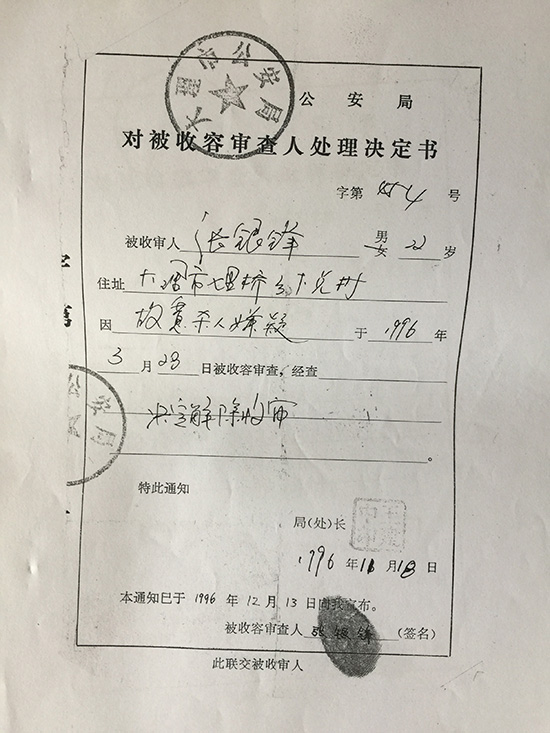 大理市公安局
公安局
对被收容审查人处理决定书
字第 454 号
被收审人 张银锋 男 女 22 岁
住址 大理市理桥乡大完村
因 故意杀人嫌疑 于 1996 年
3 月 28 日被收容审查,经查
决定解除收审
。
特此通知
局(处)长
1996 年 11 月 18 日
本通知已于 1996 年 12 月 13 日向我宣布。
被收容审查人 张银锋 (签名)
此联交被收审人